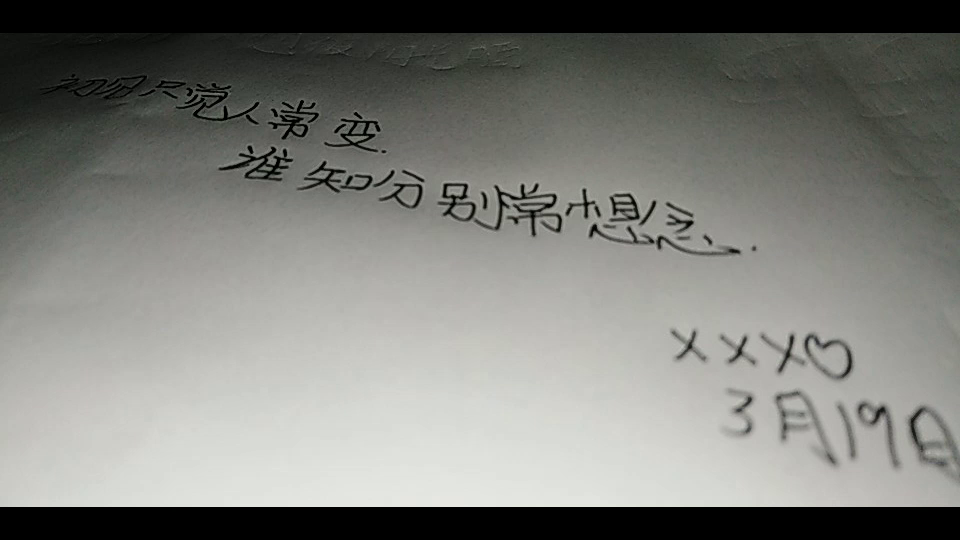 初见只觉人常变.
谁知分别常想念.
xxx♡
3月19日